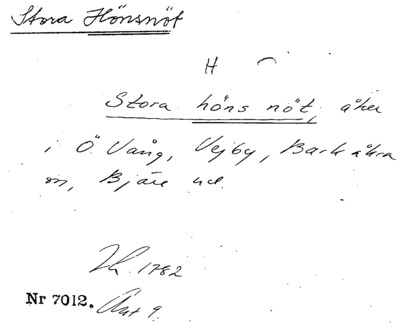 Stora Hönsnöt
H
Stora höns nöt, åker
i Ö. Vång, Vejby, Barkåkra
sn, Bjäre hd.
1782
Nr 7012. Akt 9.